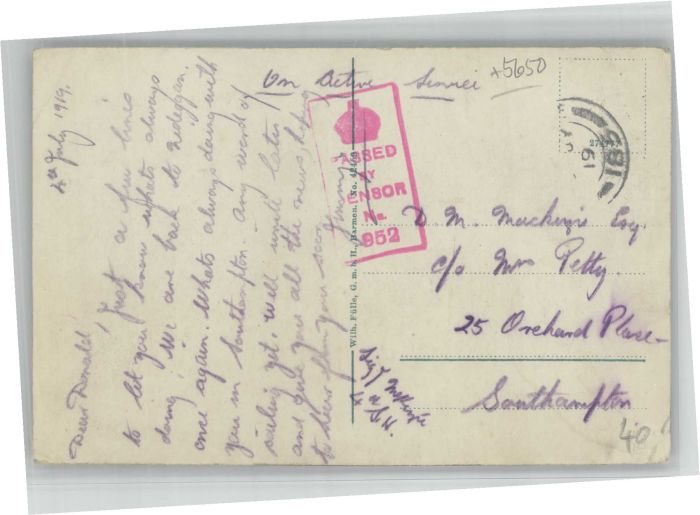 4th July 1919.
Dear Donald
Just a few lines
to let you know whats always
doing. We are back to
once again. Whats always doing with
you in Southampton. Any word of
sailing yet. Well until later
and give you all the news, hoping
to hear from you soon
Jimmy
On Active Service
+5650
PASSED
BY
CENSOR
No.
952
Wilh. Fülle, G. m. b. H., Barmen.
D. M. Mackenzie Esq.
c/o Mrs Petty.
25 Orchard Place
Southampton
40